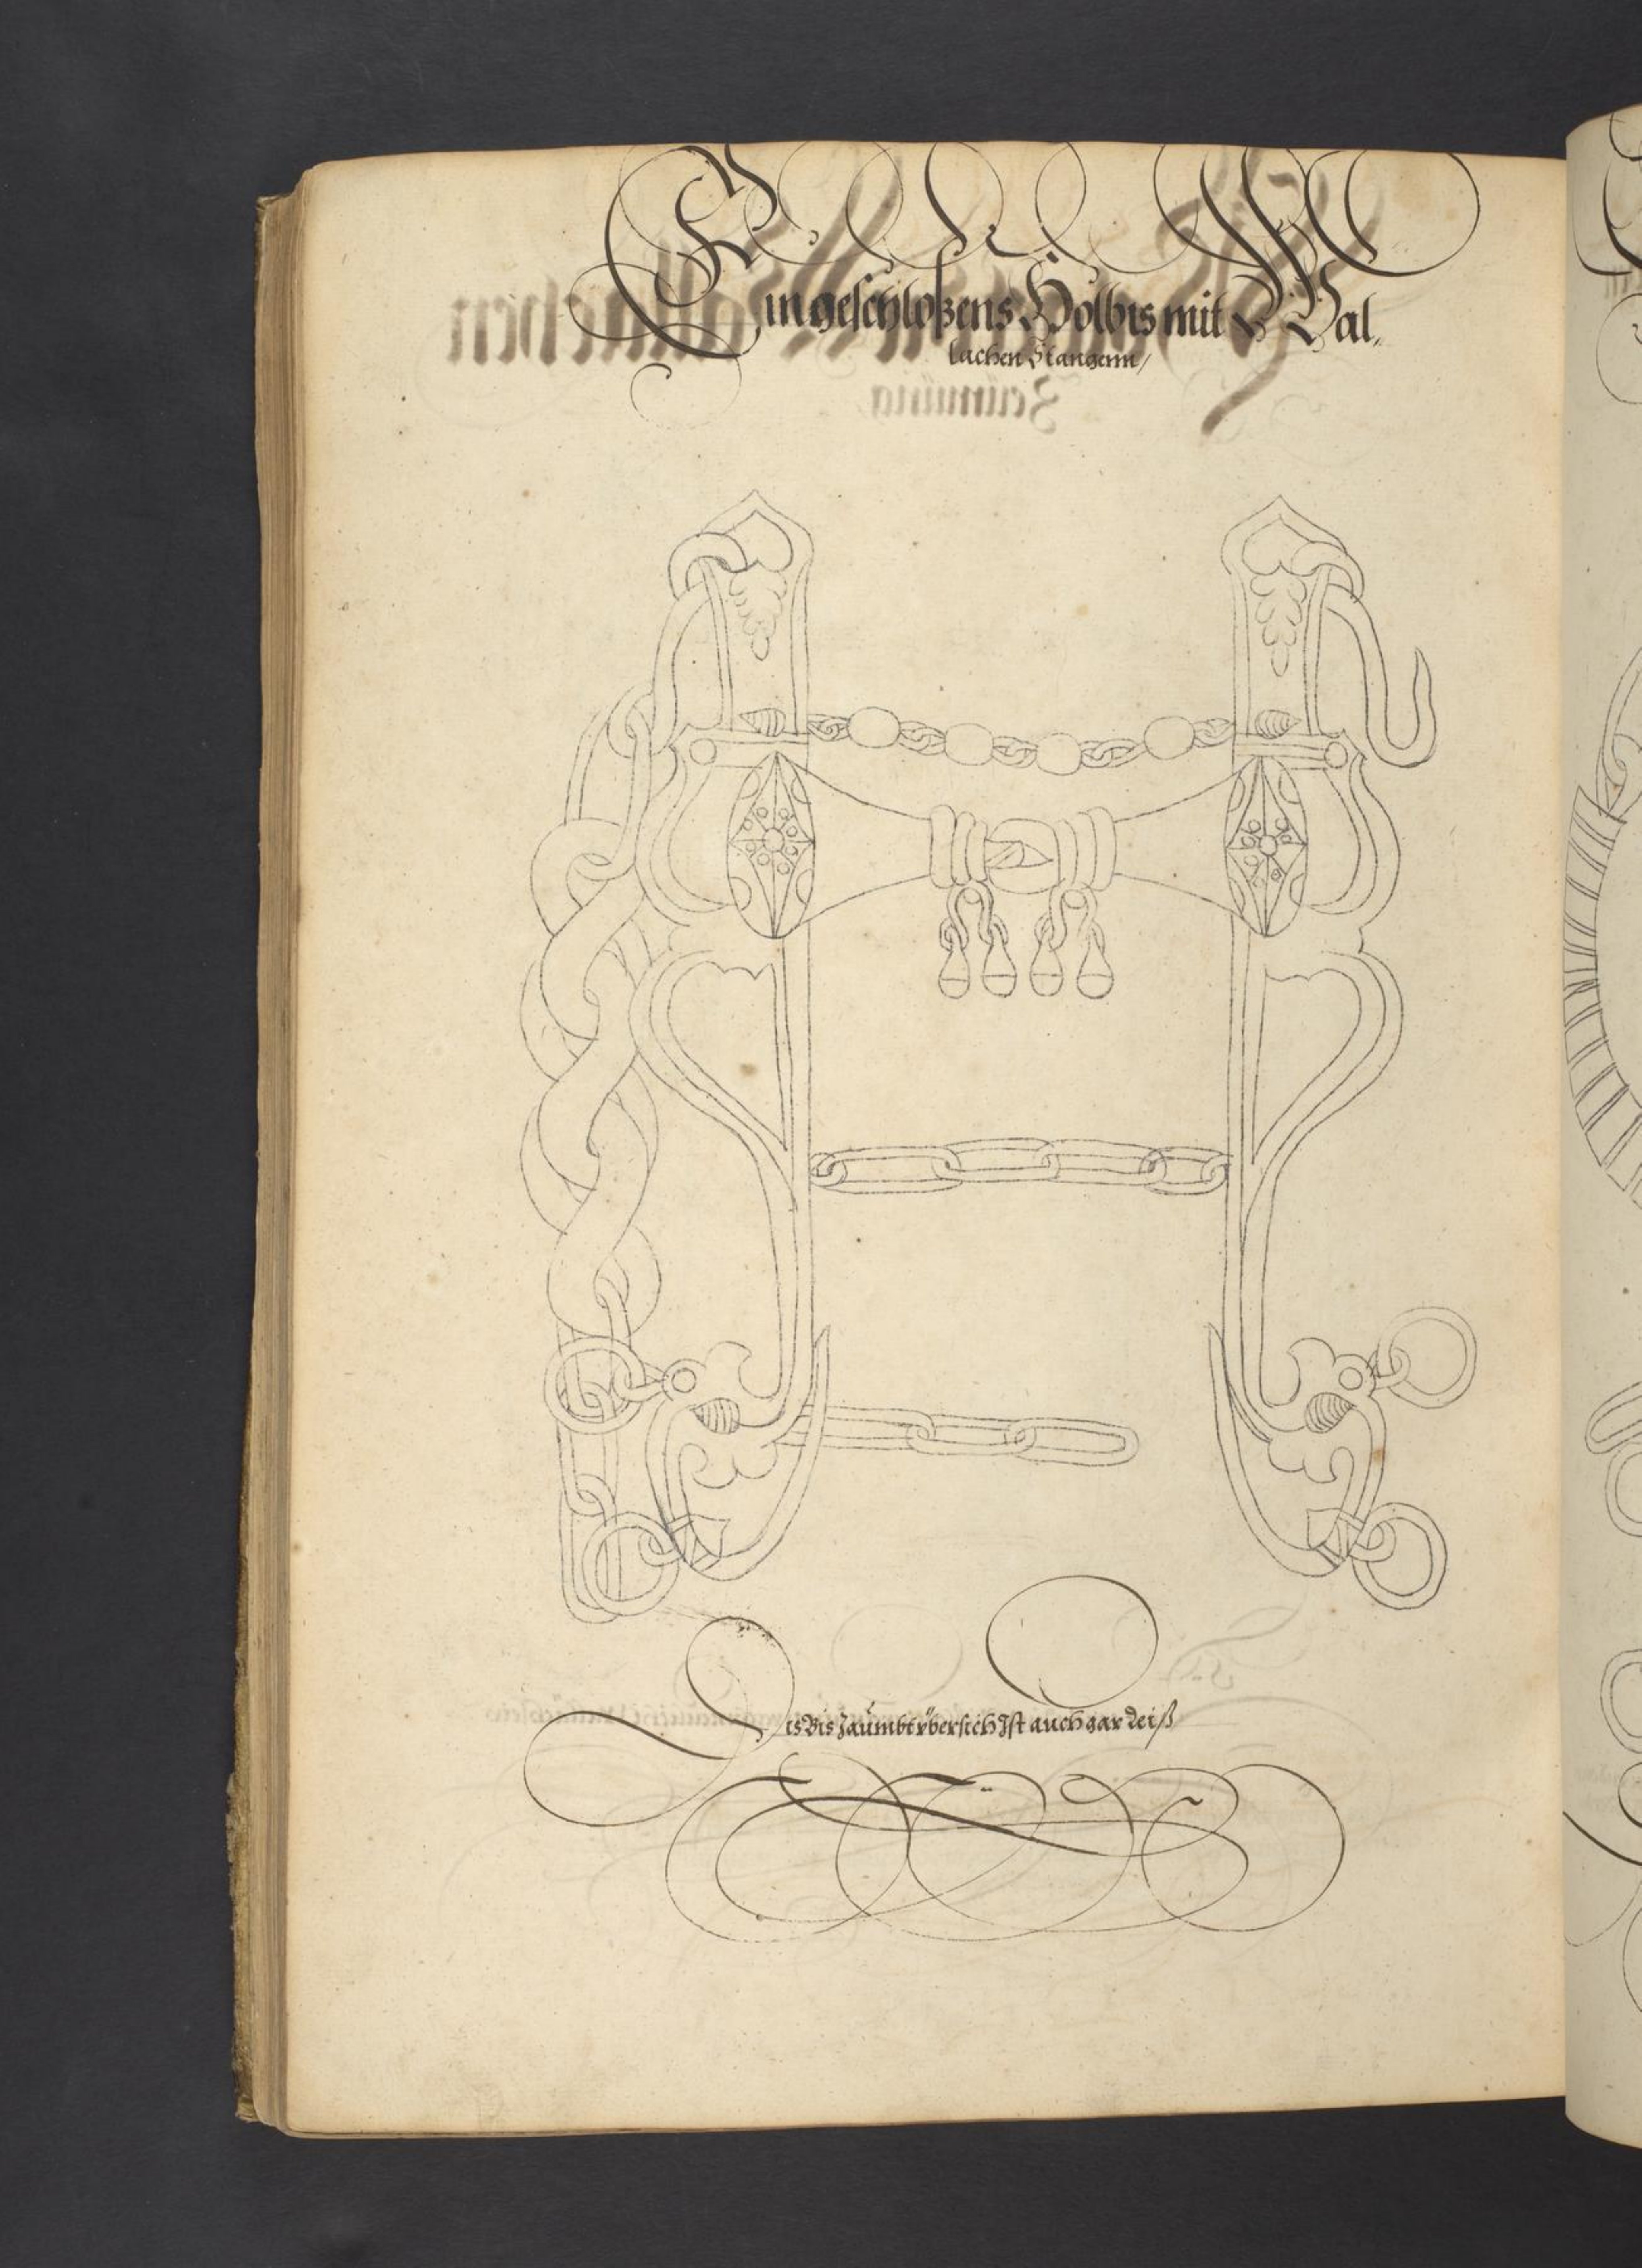 Ein geschloßens Holbis mit Wal„
lachen Stangenn /
Dis Bis Zäumbt vbersich Ist auch gar Reiß